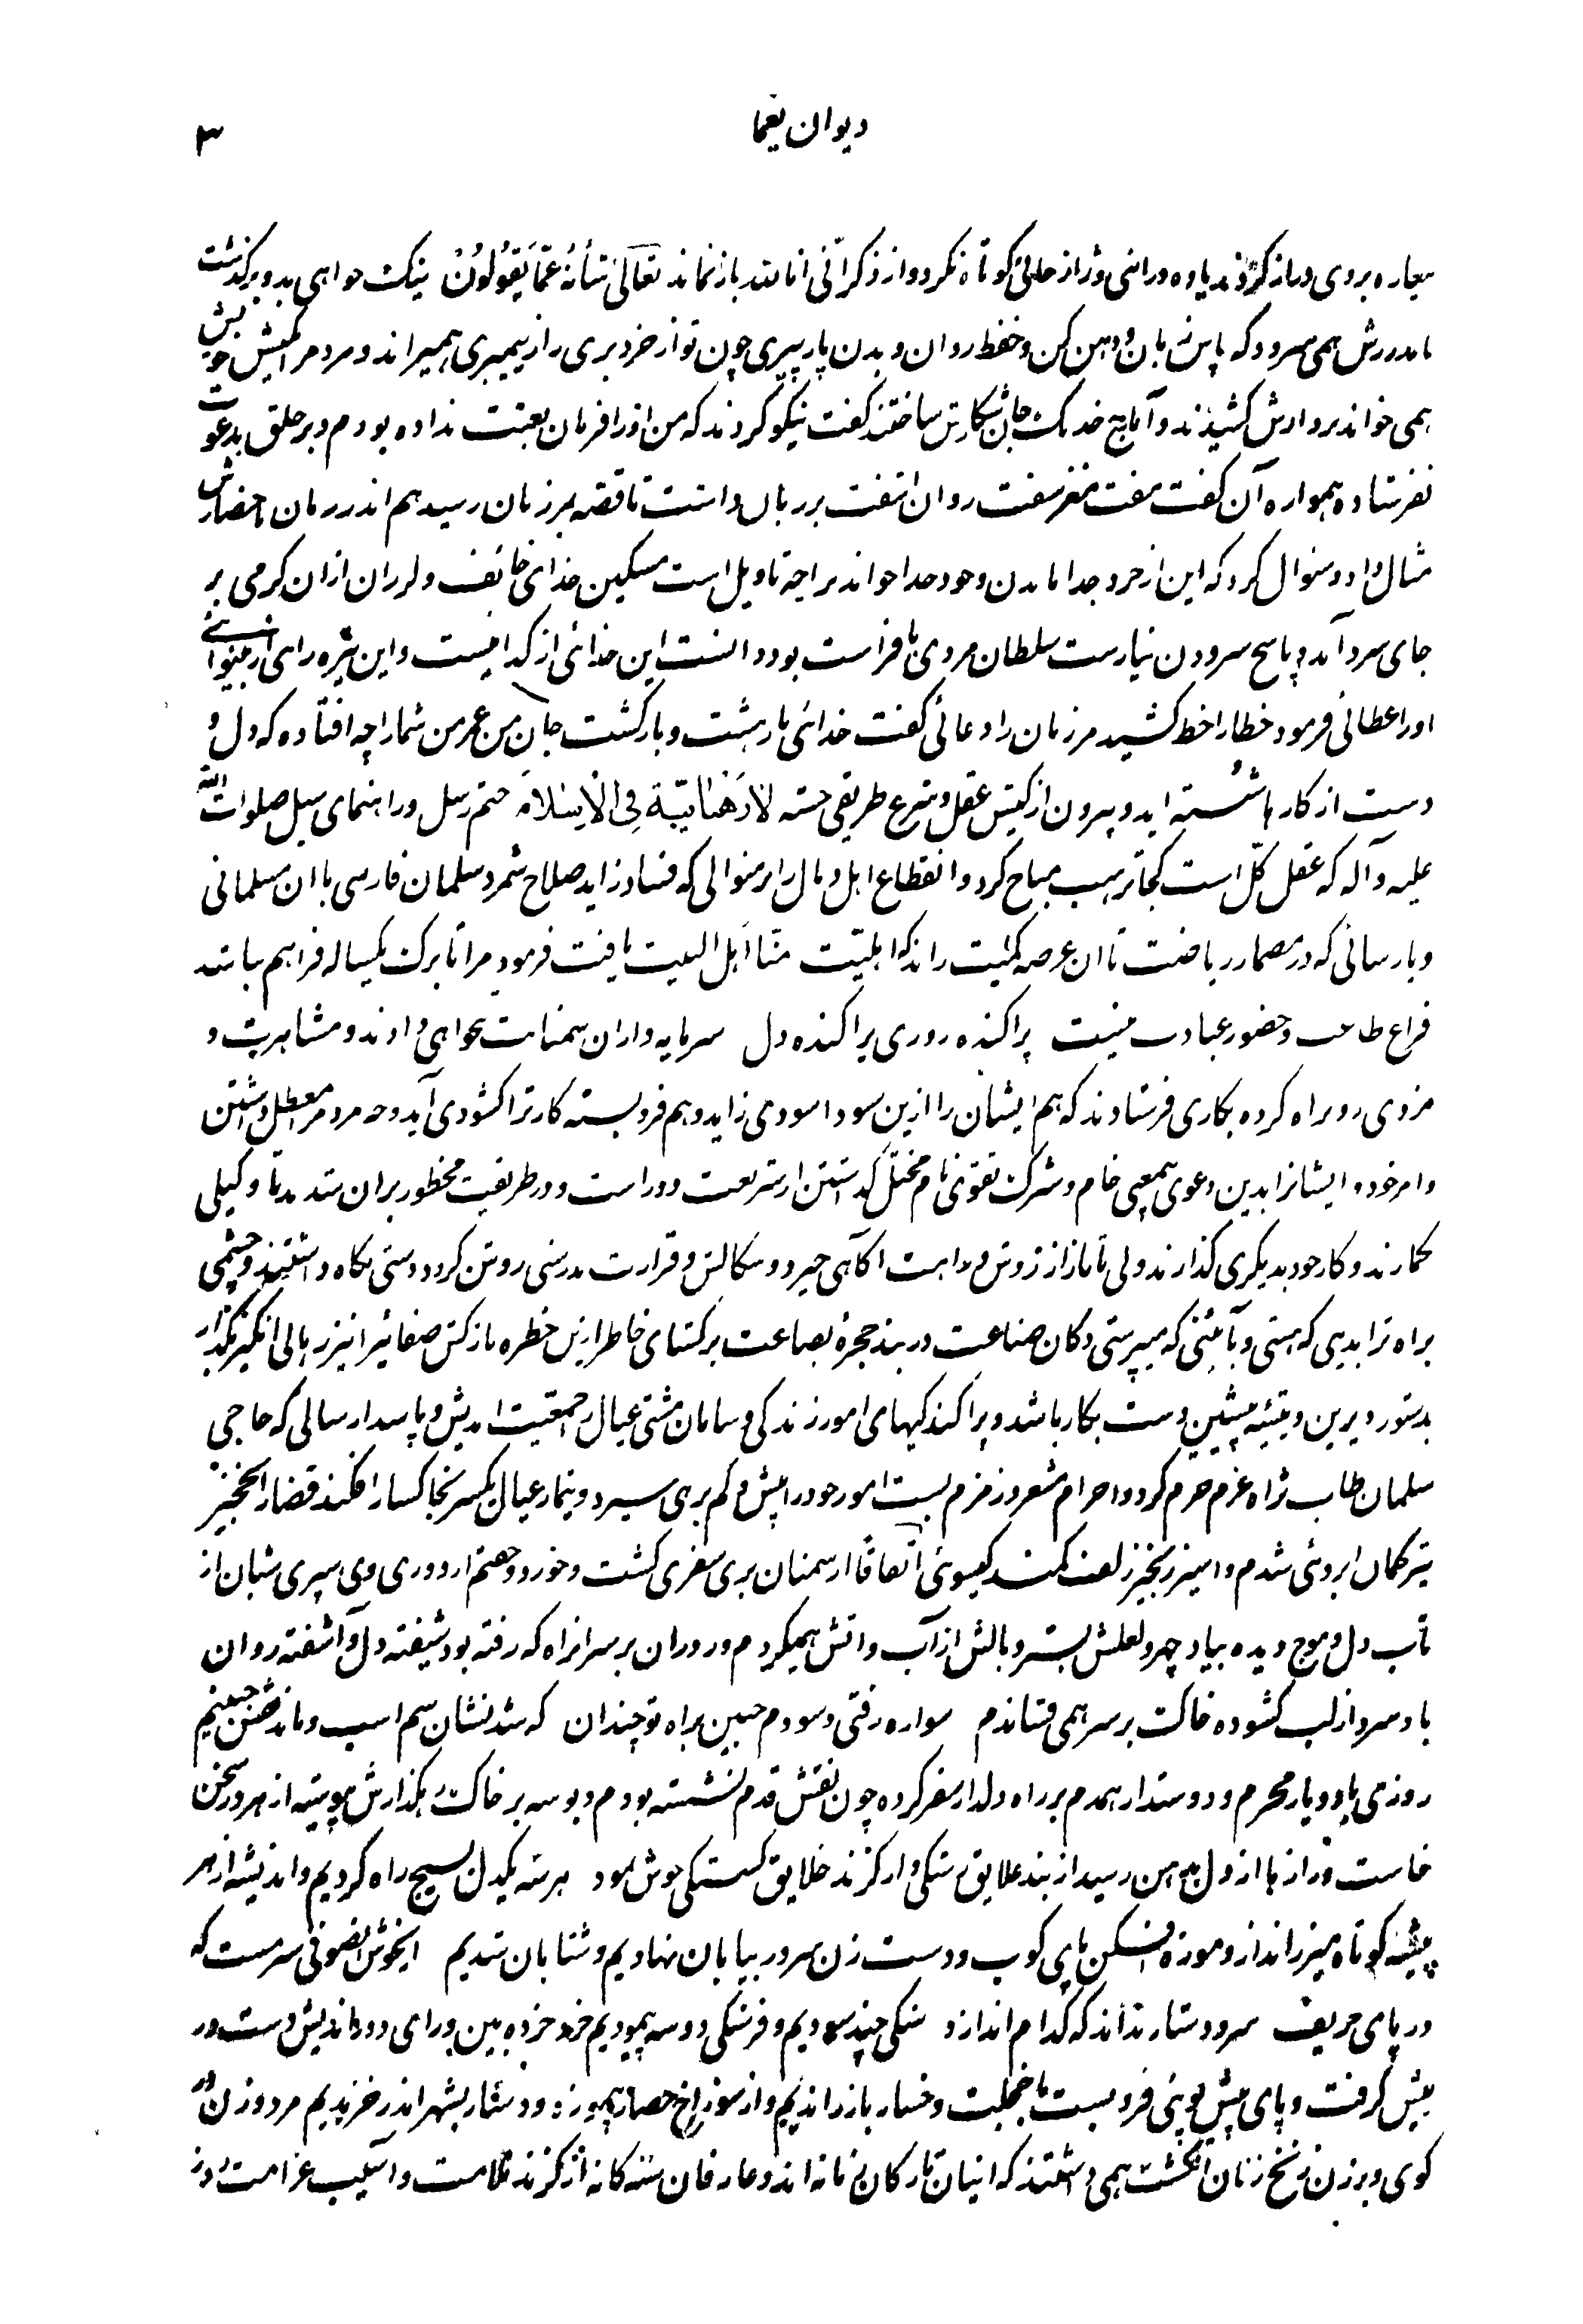 دیوان یغما
۳
بیچاره بروی دراز کردند یاوه درائی وژاژ خائی کوتاه نکرد و از ذکر انّی انا الله باز نماند تعالی شأنه عمّا یقولون نیک خواهی بدو برگذشت
باندرزش همی سرود که پاس زبان و دهن کن و حفظ روان و بدن پار پیری چون تو از خرد بری راز پیمبری همیراند و مردم را بکیش خویش
همی خواند بر دارش کشیدند و آماج خدنگ جان شکارش ساختند گفت نیکو کردند که من او را فرمان بعثت نداده بودم و بر خلق بدعوت
نفرستاده همواره آن گفت مفت مغز سفت روان آشفت بر زبان داشت تا قصه بمرزبان رسید هم اندر زمان باحضارش
مثال داد و سئوال کرد که این از خرد جدا ماندن و خود خدا خواندن را چه تاویل است مسکین خدای خائف و لرزان از ان گرمی بر
جای سرد آمد و پاسخ سرودن نیارست سلطان مردی با فراست بود دانست این خدائی از گدائیست و این تیره رائی از بینوائی
او را عطائی فرمود خطا را خط کشید مرزبان را دعائی گفت خدائی بار بهشت و بازگشت جان من عمر من شما را چه افتاده که دل و
دست از کارها شسته اید و بیرون از کیش عقل و شرع طریقی جسته لا رهبانیّة فی الاسلام ختم رسل و راهنمای سبل صلوات الله
علیه و آله که عقل کلّ است کجا ترهب مباح کرد و انقطاع اهل و مال را بر منوالی که فساد زاید صلاح شمرد سلمان فارسی با ان مسلمانی
و پارسائی که در مضمار ریاضت تا ان عرصه کمیت راند که اهلیّت منّا اهل البیت یافت فرمود مرا تا برگ یکساله فراهم نباشد
فراغ طاعت و حضور عبادت نیست پراکنده روزی پراکنده دل سرمایه داران سمنانت بخواهی داوند و مشاهرت و
مزدی روبراه کرده بکاری فرستادند که هم ایشان را ازین سودا سودی زاید و هم فروبسته کار ترا گشودی آید وجه مردم معطل داشتن
و امر خود و ایشانرا بدین دعوی خام و شرک تقوی نام مختلّ گذاشتن از شریعت دور است و در طریقت محظور بران شدند تا وکیلی
گمارند و کار خود بدیگری گذارند ولی تا باز از روش و راهت آگاهی خیزد و سگالش و قرارت بدرستی روشن گردد دستی نگاه داشتند و چشمی
براه ترا بدیهی که هستی و بآئینی که میپرستی دکان صناعت در بند حجره بضاعت برگشای خاطر ازین خطره بازکش صفائیرا نیز رهائی انگیز بگذار
بدستور دیرین و پیشه پیشین دست بکار باشد و پراکندگیهای امور زندگی و سامان مشتی عیال را جمعیّت اندیش و پاسدار سالی که حاجی
سلمان طاب ثراه عزم حرم کرد و احرام مشعر و زمزم بست امور خود را بیش و کم برهی سپرد و تیمار عیال یکسر بخاکسار افکند قضا را نخجیر
تیر کمان ابروئی شدم و اسیر زنجیر زلف کمند گیسوئی اتفاقا از سمنان بری سفری گشت و خورد و خفتم از دوری وی سپری شبان از
تاب دل و موج دیده بیاد چهر و لعلش بستر و بالش از آب و اتش همیکردم و روزان بر سر انراه که رفته بود شیفته دل و آشفته روان
باد سرد از لب گشوده خاک بر سر همی فشاندم سواره رفتی و سودم جبین براه تو چندان که شد نشان سم اسب و ماند نقش جبینم
روزی با دو یار محرم و دوستدار همدم بر راه دلدار سفر کرده چون نقش قدم نشسته بودم و بوسه بر خاک رهگذارش پیوسته از هر در سخن
خاست و رازها از دل بدهن رسید از بند علایق رستگی و از گزند خلایق گسستگی خوش نمود هر سه یکدل بسیج راه کردیم و اندیشه از هر
پیشه کوتاه میزر انداز و موزه افکن پای کوب و دست زن سر در بیابان نهادیم و شتابان شدیم ایخوش انصوفی سرمست که
در پای حریف سر و دستار نداند که کدام اندازد سنگی چند سودیم و فرسنگی دو سه پیمودیم خرد خرده بین و رای دور اندیش دست در
پیش گرفت و پای پیش پوئی فرو بست با خجلت و خسار باز راندیم و از سوراخ حصار بیموزه و دستار بشهر اندر خزیدیم مرد و زن در
کوی و برزن زنخ زنان انگشت همی داشتند که اینان تارکان زمانه اند و عارفان سه گانه از گزند ملامت و آسیب غرامت در